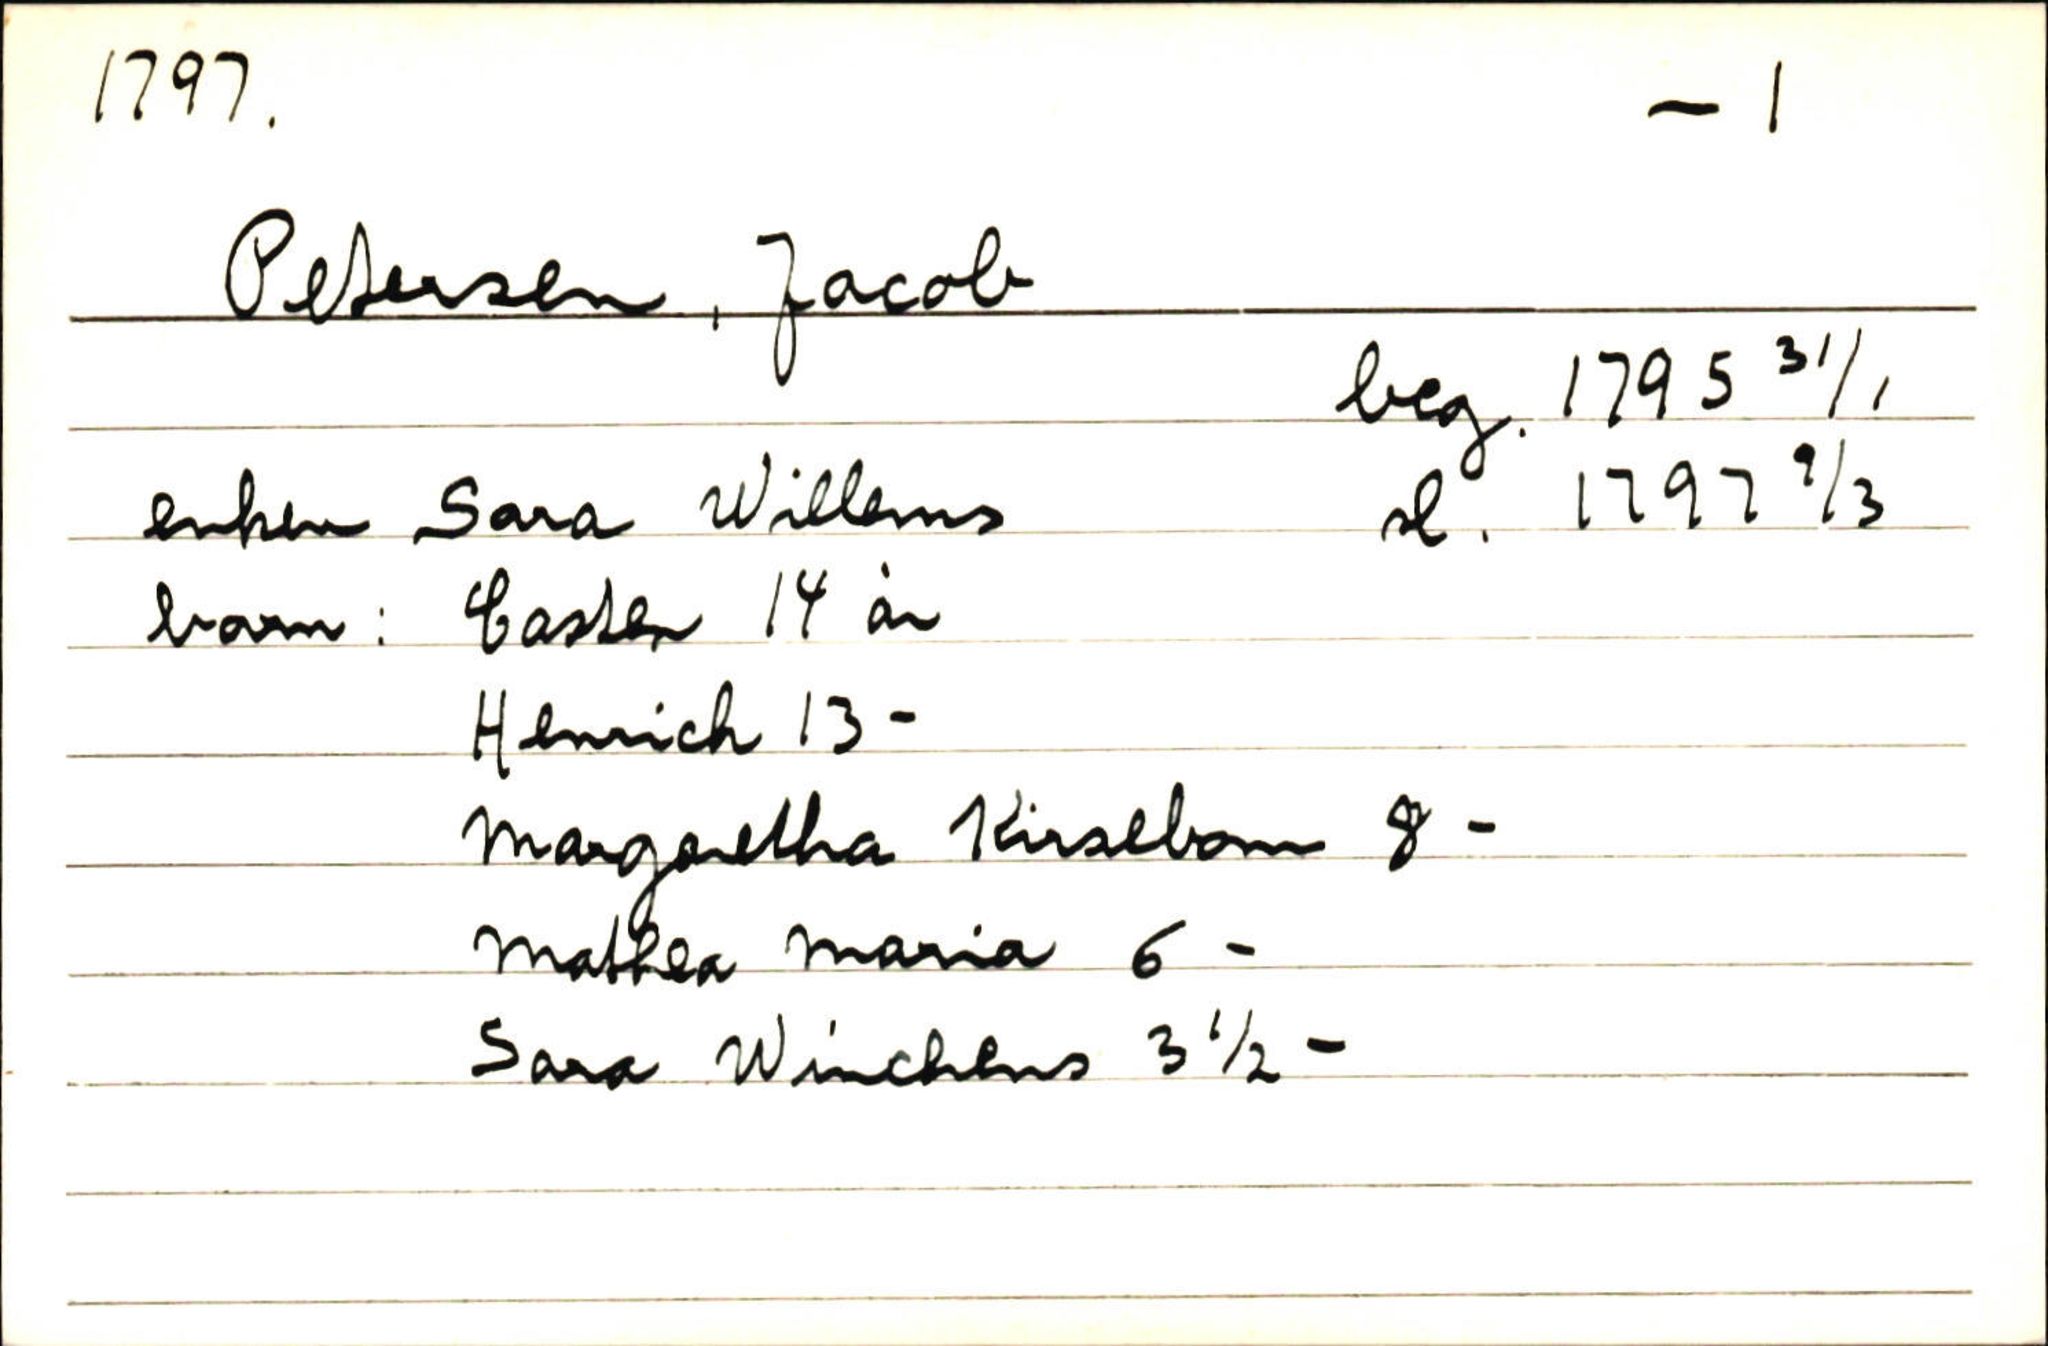 1797. ~ 1
Petersen, Jacob
beg. 1795 31/1
enken Sara Willems sl. 1797 9/3
barn: Casten 14 år
Henrich 13 -
Margaretha Kirsebom 8 -
Mathea Maria 6 -
Sara Winchens 3 1/2 -